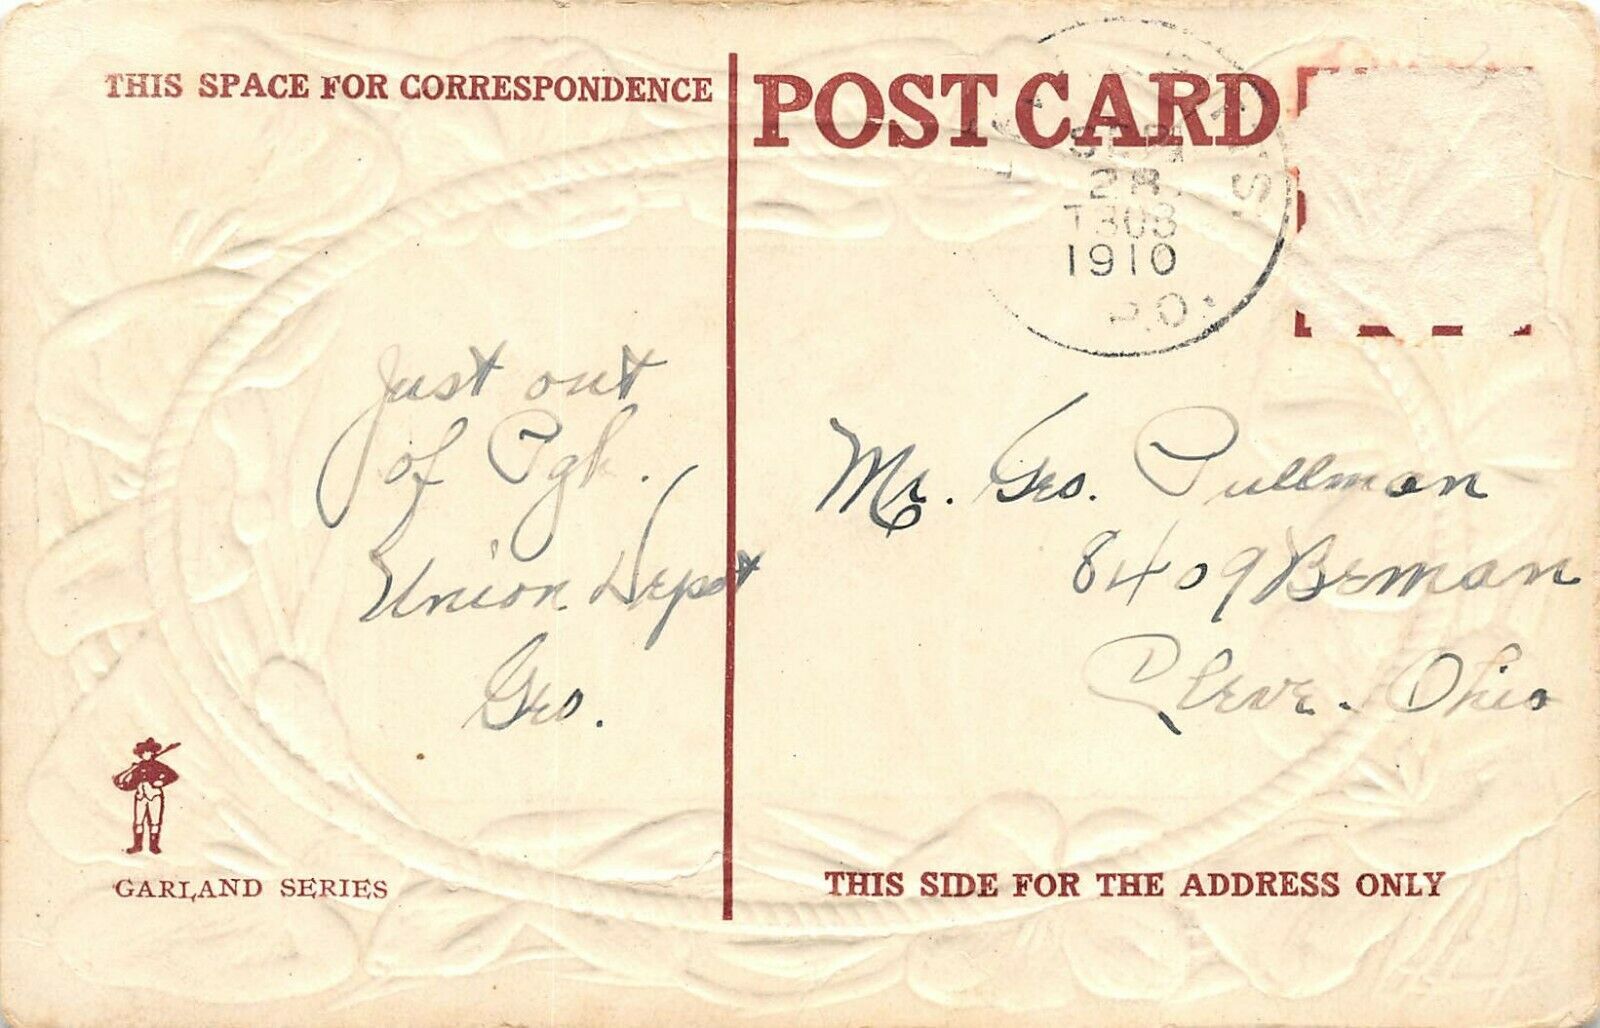 THIS SPACE FOR CORRESPONDENCE
POST CARD
SEP
28
1910
P.O.
Just out
of Pgh.
Union Depot
Geo.
Mr. Geo. Pullman
8409 Beman
Cleve. Ohio
GARLAND SERIES
THIS SIDE FOR THE ADDRESS ONLY